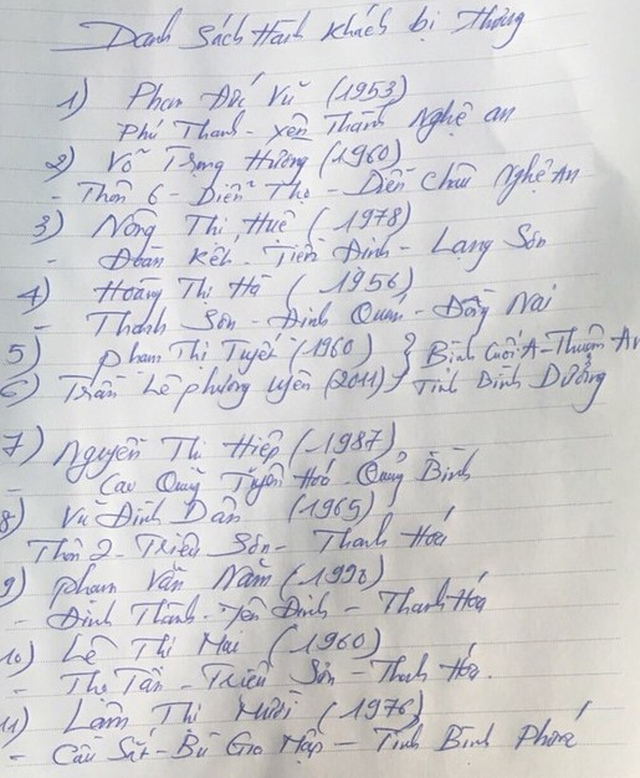 Danh Sách Hành Khách bị Thương
1) Phan Đức Vũ (1953)
Phú Thanh - Yên Thành Nghệ an
2) Võ Trọng Hường (1960)
- Thôn 6 - Diễn Thọ - Diễn Châu Nghệ An
3) Nông Thị Huê (1978)
- Đoàn Kết - Tiên Đinh - Lạng Sơn
4) Hoàng Thị Hà (1956)
- Thanh Sơn - Định Quán - Đồng Nai
5) Phạm Thị Tuyết (1960) } Bình Cuối A - Thuận An
6) Trần Lê phương Uyên (2011) } Tỉnh Bình Dương
7) Nguyễn Thị Hiệp (-1987)
- Cao Quảng Tuyên Hoá - Quảng Bình
8) Vũ Đình Dân (1965)
Thôn 2 - Triệu Sơn - Thanh Hoá
9) Phạm Văn Năm (1990)
- Định Thành - Yên Định - Thanh Hóa
10) Lê Thị Mai (1960)
- Thọ Tân - Triệu Sơn - Thanh Hóa.
11) Lâm Thị Mười (1976)
- Cầu Sắt - Bù Gia Mập - Tỉnh Bình Phước